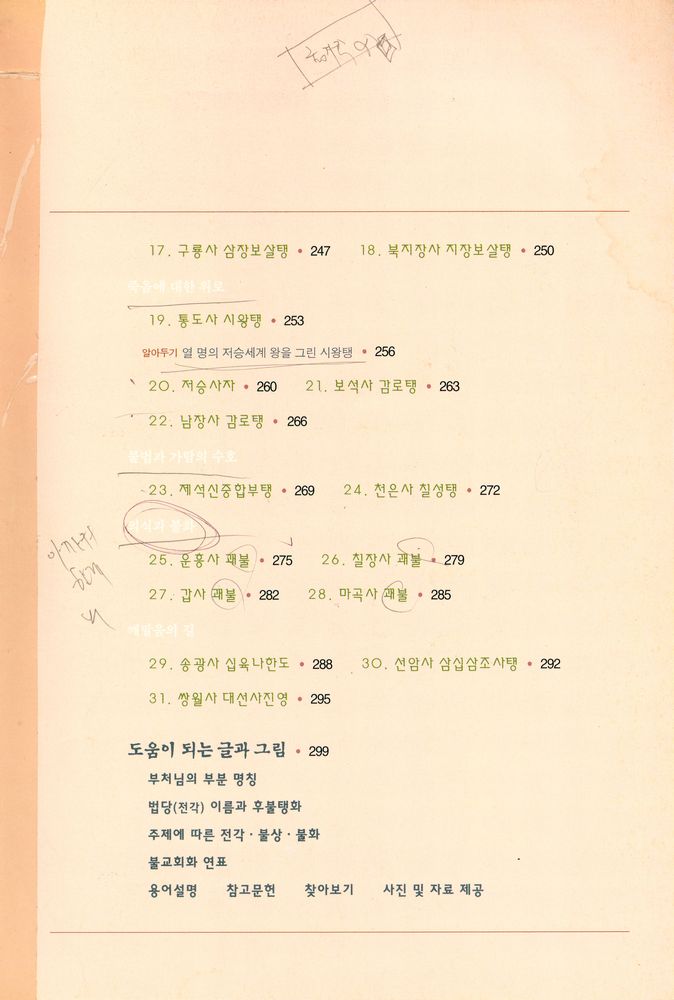 17. 구룡사 삼장보살탱 • 247 18. 북지장사 지장보살탱 • 250
죽음에 대한 위로
19. 통도사 시왕탱 • 253
알아두기 열 명의 저승세계 왕을 그린 시왕탱 • 256
20. 저승사자 • 260 21. 보석사 감로탱 • 263
22. 남장사 감로탱 • 266
불법과 가람의 수호
23. 제석신중합부탱 • 269 24. 천은사 칠성탱 • 272
의식과 불화
25. 운흥사 괘불 • 275 26. 칠장사 괘불 • 279
27. 갑사 괘불 • 282 28. 마곡사 괘불 • 285
깨달음의 길
29. 송광사 십육나한도 • 288 30. 선암사 삼십삼조사탱 • 292
31. 쌍월사 대선사진영 • 295
도움이 되는 글과 그림 • 299
부처님의 부분 명칭
법당(전각) 이름과 후불탱화
주제에 따른 전각 · 불상 · 불화
불교회화 연표
용어설명 참고문헌 찾아보기 사진 및 자료 제공